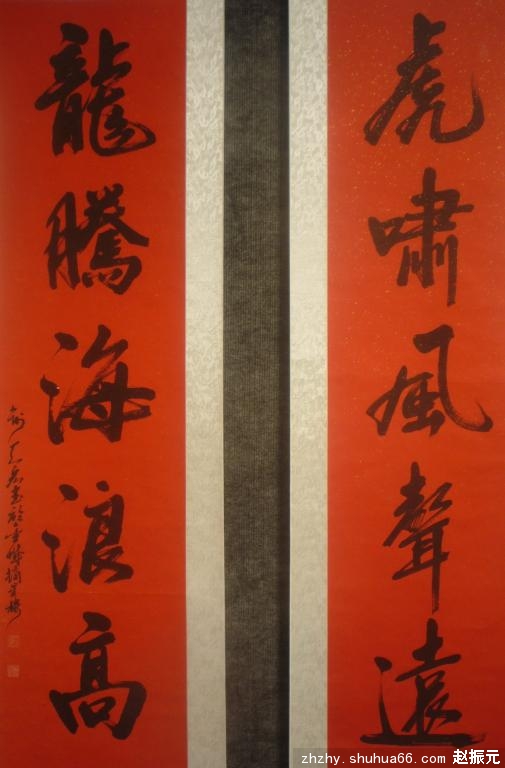 虎嘯風聲遠
龍騰海浪高
zhzhy.shuhua66.com 赵振元